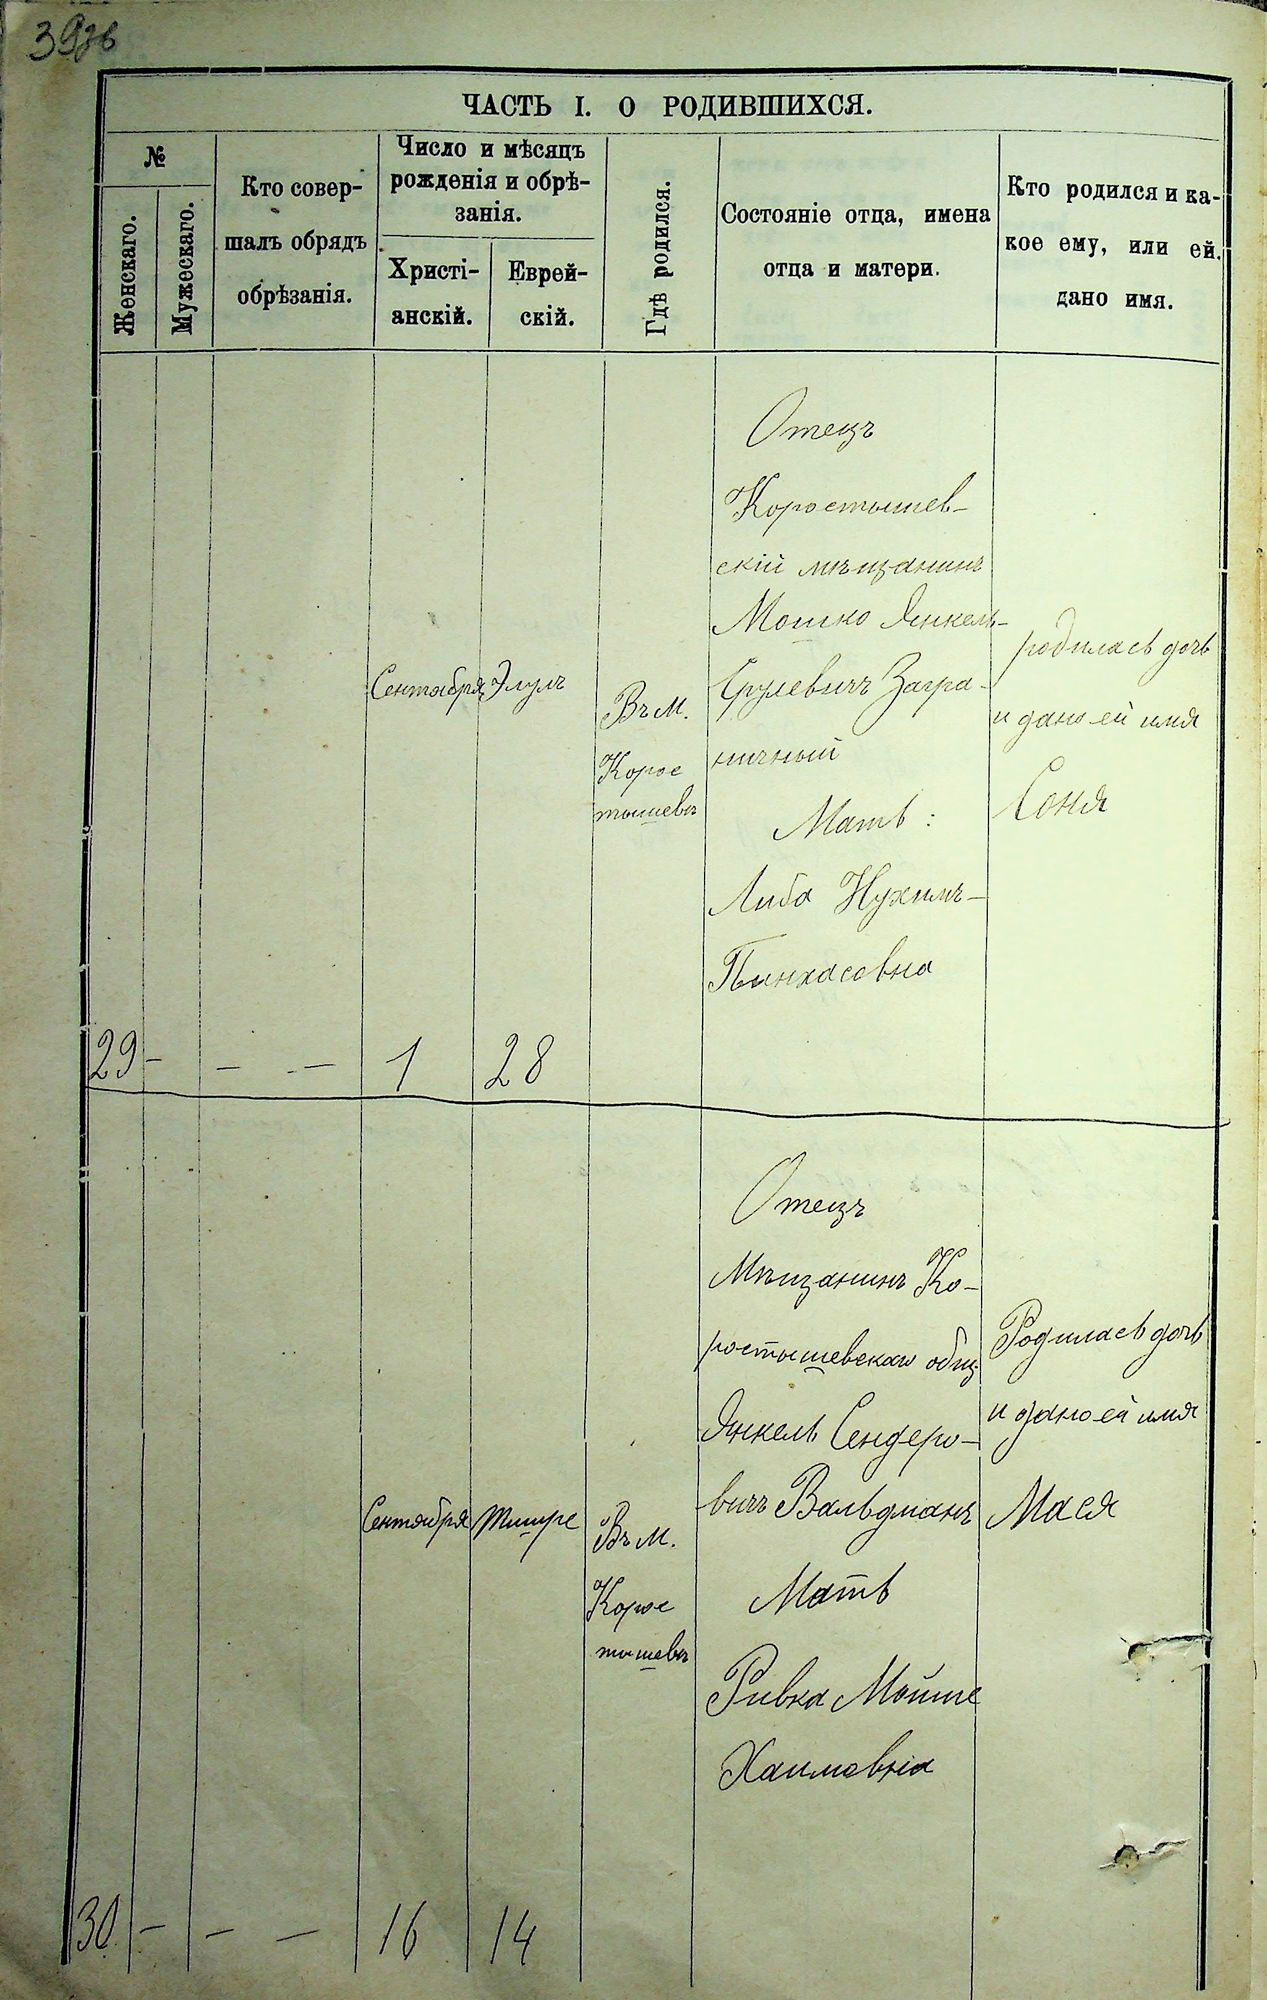 39зв
ЧАСТЬ I. О РОДИВШИХСЯ.
№
Женскаго.
Мужескаго.
Кто совер-
шалъ обрядъ
обрѣзанія.
Число и мѣсяцъ
рожденія и обрѣ-
занія.
Христі-
анскій.
Еврей-
скій.
Гдѣ родился.
Состояніе отца, имена
отца и матери.
Кто родился и ка-
кое ему, или ей,
дано имя.
29 - - -
Сентября
1
Элулъ
28
Въ м.
Корос
тышевѣ
Отецъ
Коростышев-
скій мѣщанинъ
Мошко Янкель-
Срулевичъ Загра-
ничный
Мать:
Либа Нухимъ-
Пинхасовна
родилась дочь
и дано ей имя
Соня
30 - - -
Сентября
16
Тишре
14
Въ м.
Корос
тышевѣ
Отецъ
Мѣщанинъ Ко-
ростышевскаго общ.
Янкель Сендеро-
вичъ Вальдманъ
Мать
Ривка Мойше
Хаимовна
Родилась дочь
и дано ей имя
Мася